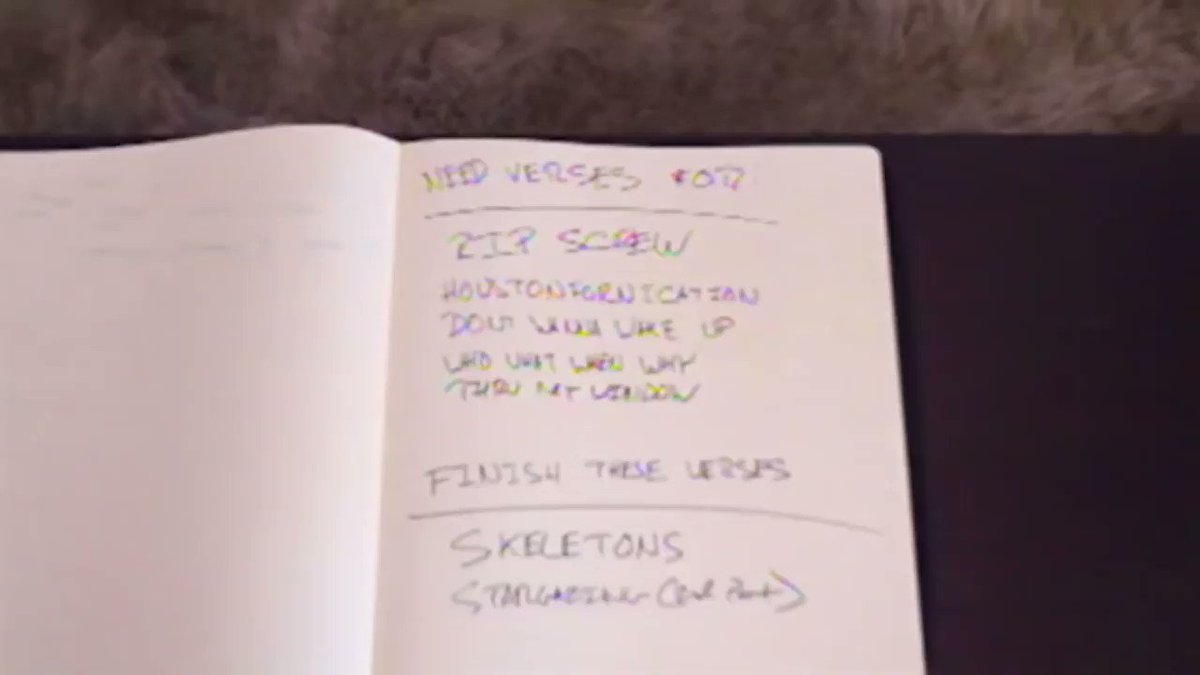 NEED VERSES FOR
RIP SCREW
HOUSTONFORNICATION
DONT WANNA WAKE UP
WHO WHAT WHEN WHY
THRU WINDOW
FINISH THESE VERSES
SKELETONS
STARGAZING (2nd Part)